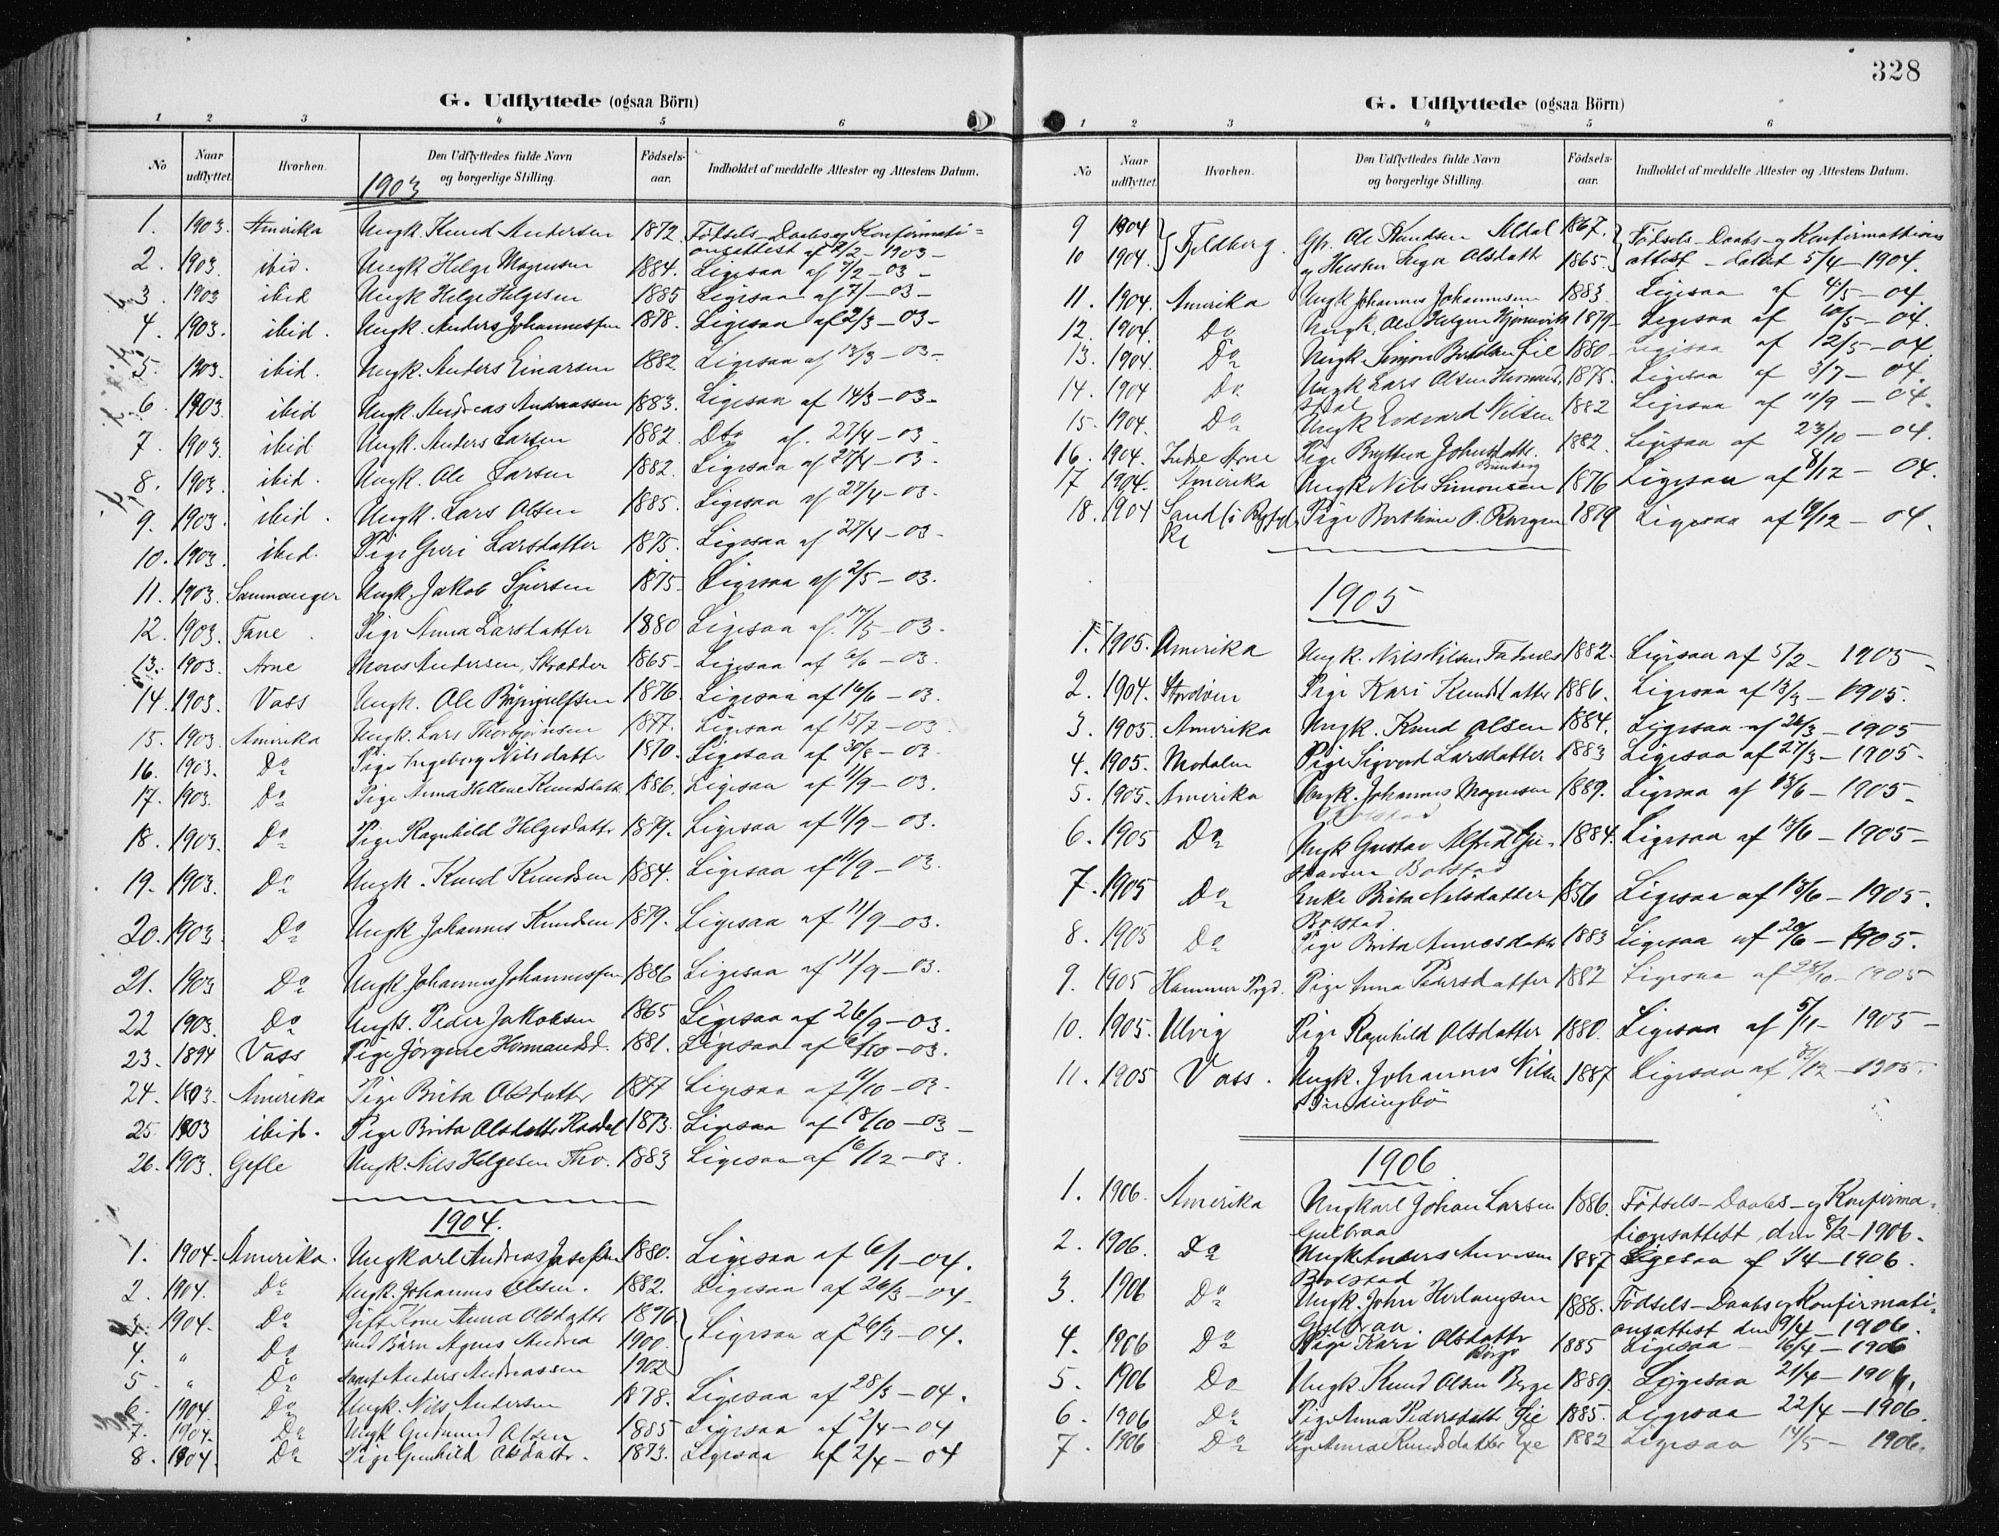 G. Udflyttede (ogsaa Börn)
1 2 3 4 5 6
No Naar udflyttet. Hvorhen. Den Udflyttedes fulde Navn og borgerlige Stilling. Födsels-aar. Indholdet af meddelte Attester og Attestens Datum.
1903
1. 1903. Amerika Ungk. Knud Andersen 1872. Fødsels-Daabs og Konfirmati=
onsattest af 2/2-1903-
2. 1903. ibid. Ungk Helge Magnusen 1884. Ligesaa af 7/2-03-
3. 1903 ibid Ungk Helge Helgesen 1885 Ligesaa af 03-
4. 1903. ibid. Ungk. Anders Johannessen 1878. Ligesaa af 2/3-03-
5. 1903. ibid. Ungk. Anders Einarsen 1882 Ligesaa af 13/3-03-
6. 1903. ibid Ungk. Andreas Andreassen 1883. Ligesaa af 14/3-03-
7. 1903. ibid Ungk. Anders Larsen 1882. Dto af. 27/4-03-
8. 1903. ibid. Ungk. Ole Larsen 1882. Ligesaa af 27/4-03-
9. 1903. ibid. Ungk. Lars Olsen 1885. Ligesaa af 27/4-03-
10. 1903. ibid. Pige Guri Larsdatter 1875. Ligesaa af 27/4-03-
11. 1903. Sammanger Ungk. Jakob Sjursen 1875- Ligesaa af 2/5-03.
12. 1903. Fane. Pige Anna Larsdatter 1880 Ligesaa af. 17/5-03.
13. 1903. Arne Mons Andersen, Skrædder 1865- Ligesaa af 6/6-03.
14. 1903. Voss Ungk. Ole 1876. Ligesaa af 16/6-03.
15. 1903. Amerika Ungk. Lars Thorbjørnsen 1877. Ligesaa af 15/7-03
16. 1903. Do Pige Ingeborg Nilsdatter Ligesaa af 30/8-03
17. 1903. Do Pige Anna Helene Knudsdatt. 1886. Ligesaa af 11/9-03.
18. 1903. Do Pige Ragnhild Helgesdattr 1877. Ligesaa af 11/9-03.
19. 1903. Do Ungk. Knud Knudsen 1884. Ligesaa af 11/9-03
20. 1903. Do Ungk Johannes Knudsen 1879. Ligesaa af 11/9-03.
21. 1903 Do Ungk Johannes Johannessen 1886 Ligesaa af 11/9-03.
22 1903. Do Ungk. Peder Jakobsen 1865 Ligesaa af 26/9-03.
23. 1894 Voss Pige Jørgine Hermandsd. 1881. Ligesaa af 6/10-03.
24. 1903. Amerika Pige Brita Olsdatter 1877 Ligesaa af 9/10-03.
25. 1903 ibid. Pige Brita Olsdatter 1873. Ligesaa af 18/10-03-
26. 1903. Gefle Ungk. Nils Helgesen Tho. 1883 Ligesaa af 16/12-03.
1904.
1. 1904. Amerika. Ungkarl Andreas Josefsen 1880. Ligesaa af 6/1-04.
2. 1904. Do Ungk. Johannes Olsen. 1882. Ligesaa af 26/3-04.
3. 1904. Do Gift Kone Anna Olsdatter 1876 Ligesaa af 26/3-04.
4. " Do med Børn Agnes Andrea 1900.
5. " Do samt Anders Andreassen 1902
6. 1904. Do Ungk. Nils Andersen 1878. Ligesaa af 28/3-04.
7. 1904. Do Ungk Gudmund Olsen 1885 Ligesaa af 2/4-04
8. 1904. Do Pige Gunhild Olsdattr. 1873. Ligesaa af 2/4-04
328
G. Udflyttede (ogsaa Börn)
1 2 3 4 5 6
No Naar udflyttet. Hvorhen. Den Udflyttedes fulde Navn og borgerlige Stilling. Födsels-aar. Indholdet af meddelte Attester og Attestens Datum.
9 1904 Fjeldberg. Gfr. Ole Knudsen Aldal 1867. Fødsels-Daabs-og Konfirmations
10 1904. og Hustru Inga Olsdatt 1865. attest-dateret 5/4-1904.
11. 1904. Amerika Ungk Johannes Johannesen 1883. Ligesaa af 4/5-04.
12. 1904. Do Ungk. Ole Helgesen 1879- Ligesaa af 10/5-04.
13. 1904. Do Ungk. Simon 1880- Ligesaa af 12/5-04.
14. 1904 Do Ungk Lars Olsen 1875. Ligesaa af 3/7-04.
15- 1904. Do Ungk Edvard Nilsen 1882 Ligesaa af 11/9-04.
16. 1904. Indre Arne Pige Brythea 1882. Ligesaa af 23/10-04.
17 1904. Amerika Ungk Nils Simonsen 1876 Ligesaa af 8/12-04.
18. 1904 Sand i Ryfylke Pige Berthine 1879 Ligesaa af 9/12-04.
1905
1. 1905. Amerika Ungk. Nils Nilsen 1882. Ligesaa af 5/2-1905-
2. 1904. Stordøen Pige Kari Knudsdatter 1886. Ligesaa af 13/3-1905.
3. 1905. Amerika Ungk. Knud Olsen 1884. Ligesaa af 26/3-1905
4. 1905. Modalen Pige Sigvord Larsdatter 1883 Ligesaa af 27/3-1905.
5. 1905. Amerika Ungk. Johannes Magnusen 1889. Ligesaa af 13/6-1905-
Bolstad
6. 1905 Do Ungk Gustav Alfred Gu- 1884. Ligesaa af 13/6-1905-
stavsen Bolstad
7. 1905 Do Enke Brita Nilsdatter 1856 Ligesaa af 13/6-1905.
Bolstad
8. 1905 Do Pige Brita Annesdatter 1883 Ligesaa af 20/6-1905.
9. 1905 Hammer Prgd. Pige Anna Pedersdatter 1882 Ligesaa af 28/10-1905
10. 1905. Ulvig Pige Ragnhild Olsdatter 1880. Ligesaa af 5/11-1905-
11. 1905 Voss. Ungk. Johannes Nilsen 1887 Ligesaa af /12-1905-
1906
1. 1906. Amerika Ungkarl Johan Larsen 1886. Fødsels-Daabs-og Konfirma-
Gulbraa tionsattest, den 8/2-1906.
2. 1906. Do Ungk Anders Annesen 1887 Ligesaa af 1/4-1906.
Bolstad
3. 1906 Do Ungk. John Herlaugsen 1888. Fødsels-Daabs og Konfirmati-
Gulbraa. onsattest den 9/4-1906.
4. 1906 Do Pige Kari Olsdattr 1885 Ligesaa- 16/4-1906
5. 1906 Do Ungk. Knud Olsen Berge 1889. Ligesaa 21/4-1906.
6. 1906 Do Pige Anna Pedersdatter 1885. Ligesaa 22/4-1906.
7. 1906 Do Pige Anna Knudsdatter 1882 Ligesaa 14/5-1906.